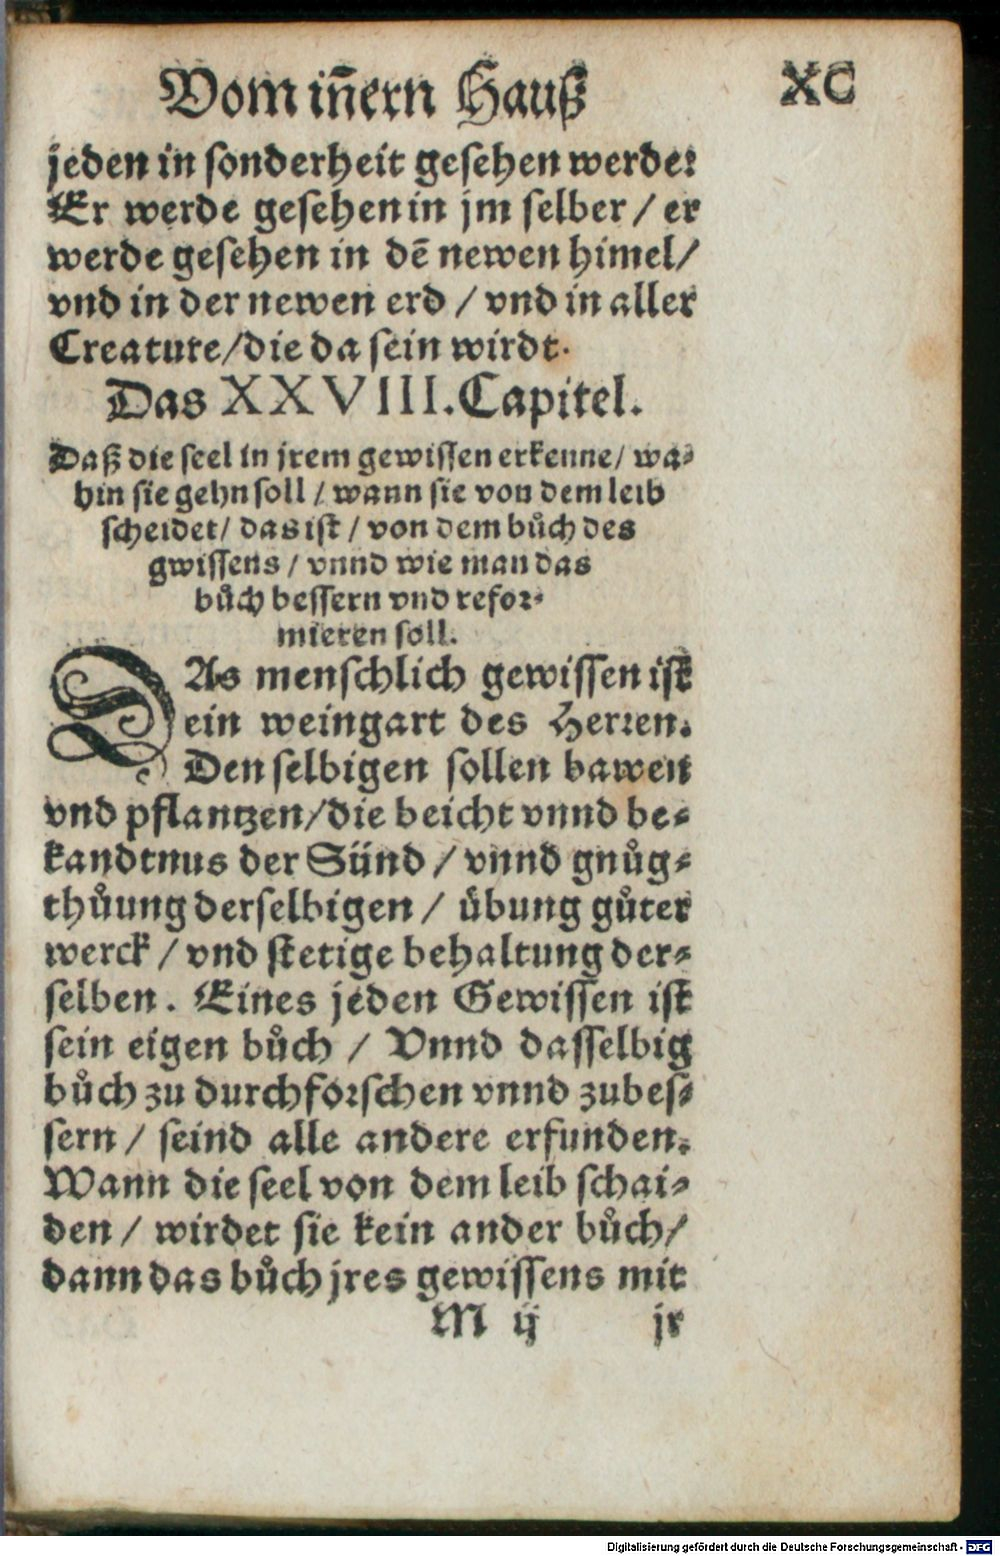 Vom iñern Hauß XC
jeden in sonderheit gesehen werde:
Er werde gesehen in jm selber / er
werde gesehen in dē newen himel/
vnd in der newen erd / vnd in aller
Creature/die da sein wirdt.
Das XXVIII. Capitel.
Daß die seel in jrem gewissen erkenne/ wa-
hin sie gehn soll / wann sie von dem leib
scheidet/ das ist / von dem bůch des
gwissens / vnnd wie man das
bůch bessern vnd refor-
mieren soll.
DAs menschlich gewissen ist
ein weingart des Herren.
Den selbigen sollen bawen
vnd pflantzen/die beicht vnnd be-
kandtnus der Sünd / vnnd gnůg-
thůung derselbigen / übung gůter
werck / vnd stetige behaltung der-
selben. Eines jeden Gewissen ist
sein eigen bůch / Vnnd dasselbig
bůch zu durchforschen vnnd zubes-
sern / seind alle andere erfunden.
Wann die seel von dem leib schai-
den / wirdet sie kein ander bůch/
dann das bůch jres gewissens mit
M ij jr
Digitalisierung gefördert durch die Deutsche Forschungsgemeinschaft - DFG